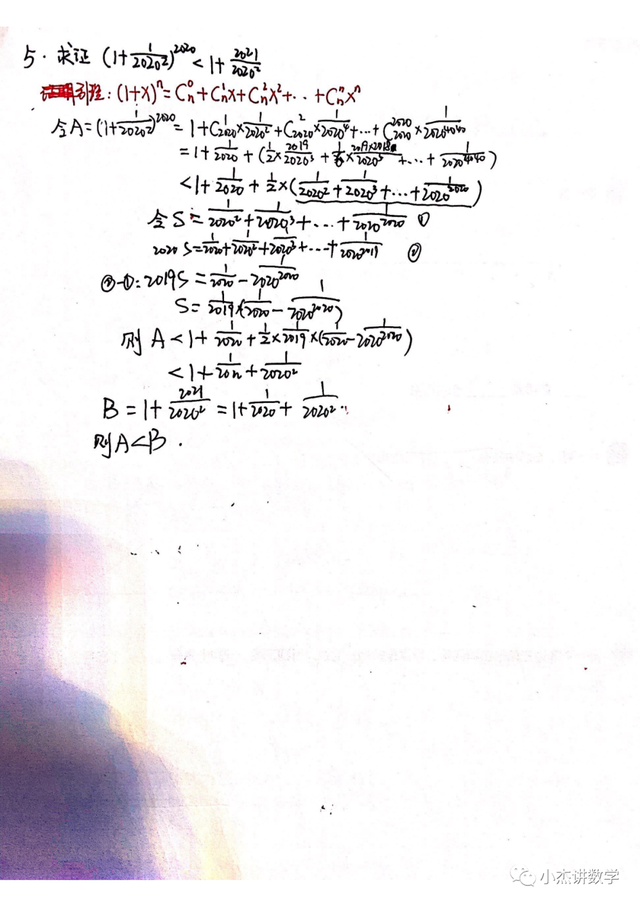 5. 求证 (1+1/2020²)^2020 < 1+2021/2020²
引理: (1+x)^n = C_n^0+C_n^1x+C_n^2x²+...+C_n^nx^n
令A=(1+1/2020²)^2020=1+C_2020^1×1/2020²+C_2020^2×1/2020⁴+...+C_2020^2020×1/2020^4040
=1+1/2020+(1/2×2019/2020³+1/6×2019×2018/2020⁵+...+1/2020^4040)
<1+1/2020+1/2×(1/2020²+1/2020³+...+1/2020^2020)
令S=1/2020²+1/2020³+...+1/2020^2020 ①
2020S=1/2020+1/2020²+1/2020³+...+1/2020^2019 ②
②-①:2019S=1/2020-1/2020^2020
S=1/2019×(1/2020-1/2020^2020)
则 A<1+1/2020+1/2×1/2019×(1/2020-1/2020^2020)
<1+1/2020+1/2020²
B=1+2021/2020²=1+1/2020+1/2020².
则A<B.
小杰讲数学